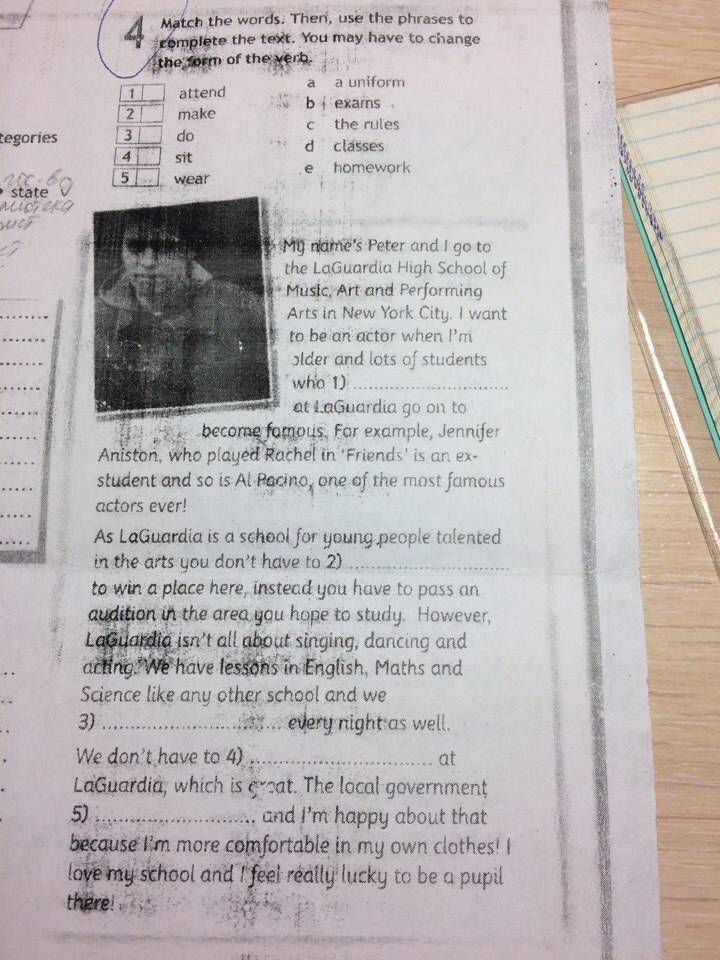 4
Match the words. Then, use the phrases to
complete the text. You may have to change
the form of the verb.
1 attend
2 make
3 do
4 sit
5 wear
a a uniform
b exams
c the rules
d classes
e homework
tegories
state
My name's Peter and I go to
the LaGuardia High School of
Music, Art and Performing
Arts in New York City. I want
to be an actor when I'm
older and lots of students
who 1) ..............................
at LaGuardia go on to
become famous. For example, Jennifer
Aniston, who played Rachel in 'Friends' is an ex-
student and so is Al Pacino, one of the most famous
actors ever!
As LaGuardia is a school for young people talented
in the arts you don't have to 2) ..............................
to win a place here, instead you have to pass an
audition in the area you hope to study. However,
LaGuardia isn't all about singing, dancing and
acting. We have lessons in English, Maths and
Science like any other school and we
3) .............................. every night as well.
We don't have to 4) .............................. at
LaGuardia, which is great. The local government
5) .............................. and I'm happy about that
because I'm more comfortable in my own clothes! I
love my school and I feel really lucky to be a pupil
there!